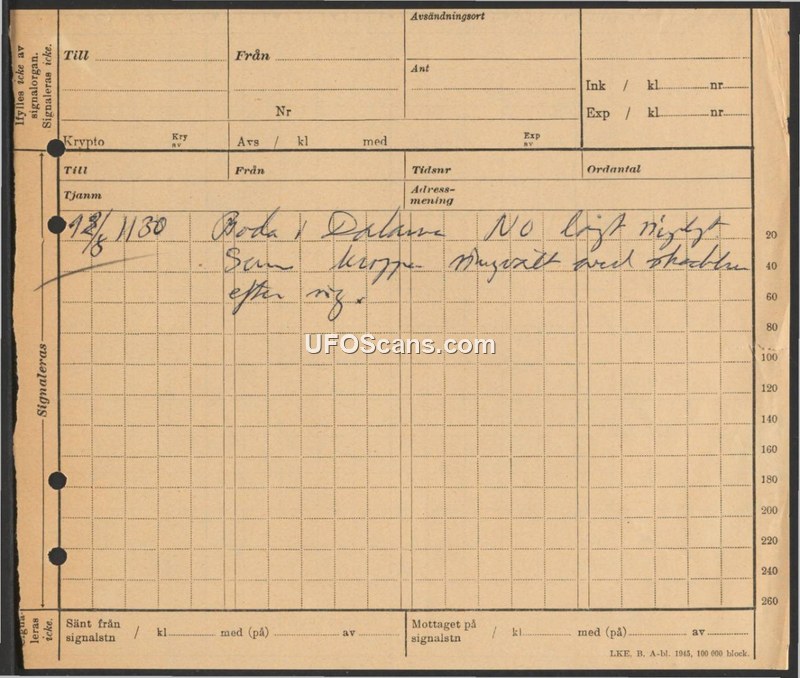 Ifylles icke av
signalorgan.
Signaleras icke.
Till
Från
Avsändningsort
Ant
Nr
Ink / kl nr
Exp / kl nr
Krypto Kry av
Avs / kl med Exp av
Till Från Tidsnr Ordantal
Tjanm Adress-
mening
1130 Boda i Dalarna NO lågt
Som med
efter sig.
20
40
60
80
100
120
140
160
180
200
220
240
260
Signaleras
UFOScans.com
leras
icke.
Sänt från
signalstn / kl med (på) av
Mottaget på
signalstn / kl med (på) av
LKE. B. A-bl. 1945, 100 000 block.